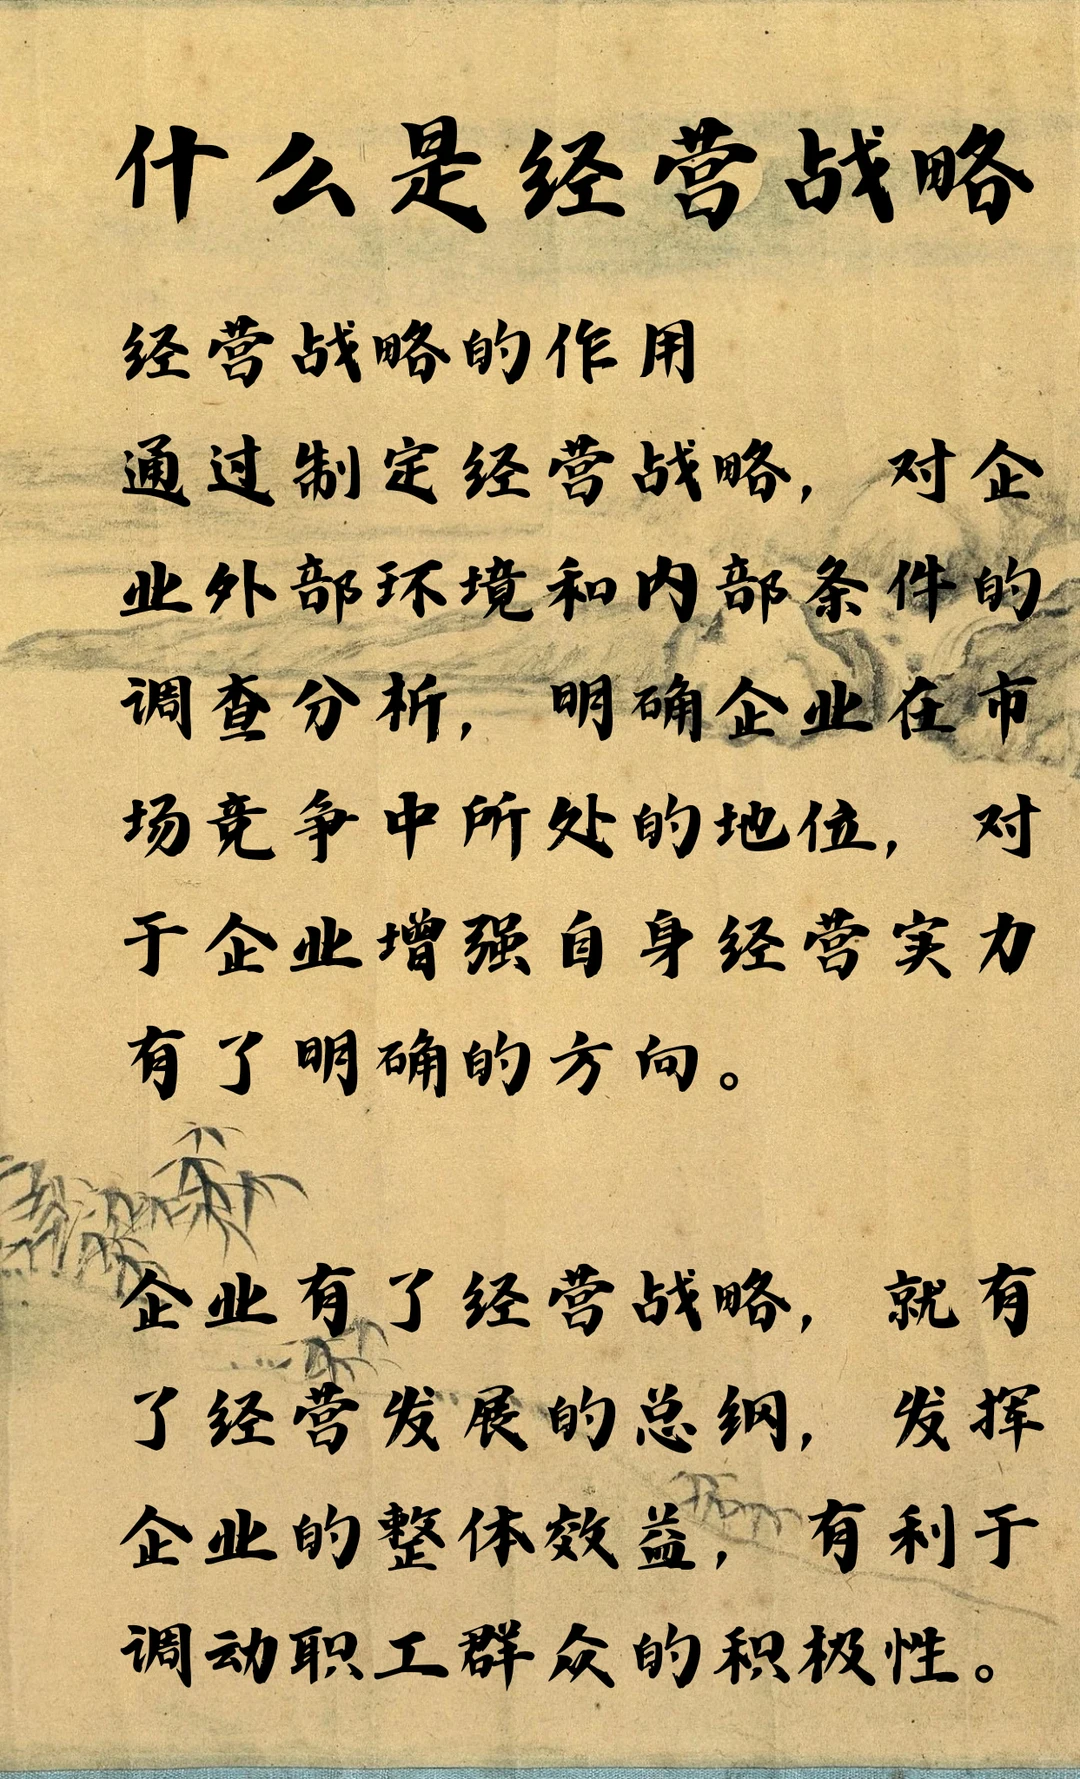 什么是经营战略
经营战略的作用
通过制定经营战略，对企
业外部环境和内部条件的
调查分析，明确企业在市
场竞争中所处的地位，对
于企业增强自身经营实力
有了明确的方向。
企业有了经营战略，就有
了经营发展的总纲，发挥
企业的整体效益，有利于
调动职工群众的积极性。